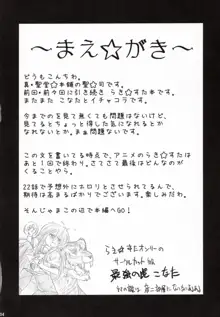 ～まえ☆がき～
どうもこんちわ。
真・聖堂☆本舗の聖☆司です。
前回・前々回に引き続き らき☆すた本です。
またまた こなたとイチャコラです。
今までのを見て無くても問題はないけど、
見てるとちょっと得した気分になれるかも
しれないし、なれないかも。まあ問題ないです。
この文を書いてる時点で、アニメのらき☆すた
はあと1回で終わりです。さてさて最後はどんなの
になるのかなぁ。
22話で予想外にホロリとさせられてるんで、
期待は高まるばかりでございます。楽しみだわ。
そんじゃまこの辺で本編へGO！
らき☆すたオンリーの
サークルカット改